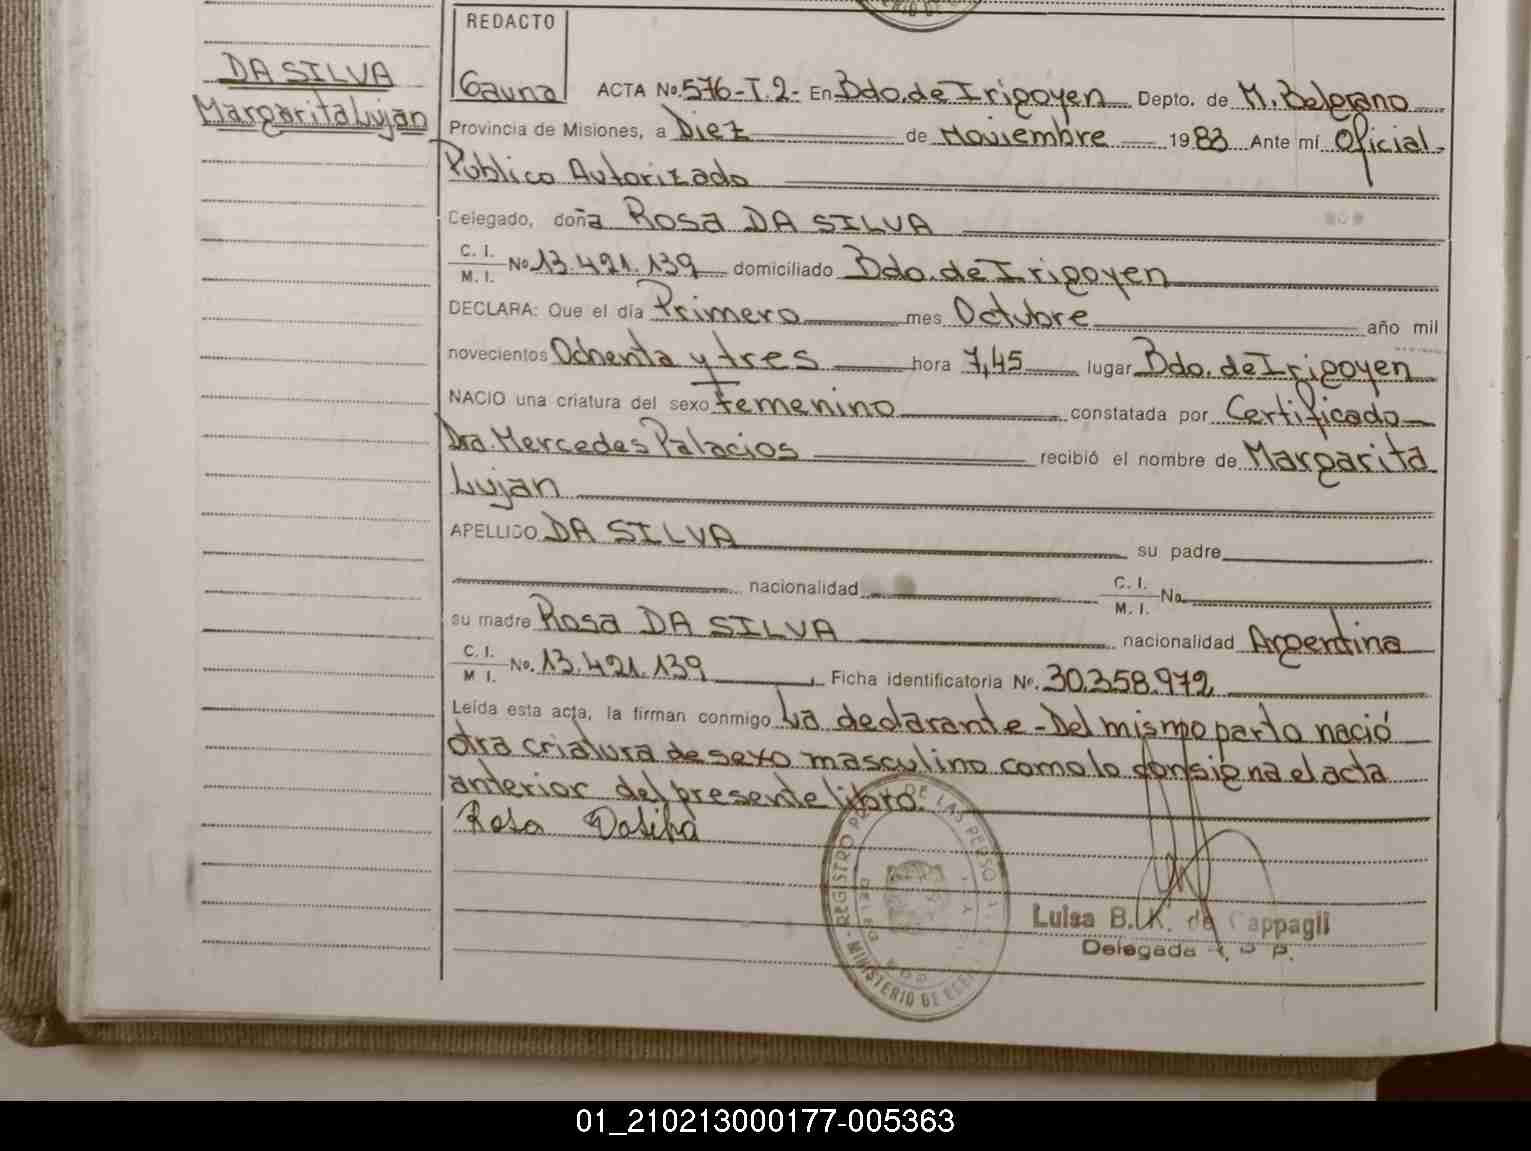 REDACTO
DA SILVA
Margarita Lujan
Gauna
ACTA No. 576-T.2- En Bdo. de Irigoyen Depto. de M. Belgrano
Provincia de Misiones, a Diez de Noviembre 1983 Ante mí Oficial
Publico Autorizado
Celegado, doña Rosa DA SILVA
C. I.
M. I. No 13.421.139 domiciliado Bdo. de Irigoyen
DECLARA: Que el día Primero mes Octubre año mil
novecientos Ochenta y tres hora 7,45 lugar Bdo. de Irigoyen
NACIO una criatura del sexo femenino constatada por Certificado
Dra. Mercedes Palacios recibió el nombre de Margarita
Lujan
APELLIDO DA SILVA su padre
nacionalidad C. I. M. I. No.
su madre Rosa DA SILVA nacionalidad Argentina
C. I.
M I. No. 13.421.139 Ficha identificatoria Nº. 30.358.972
Leída esta acta, la firman conmigo La declarante - Del mismo parto nació
otra criatura de sexo masculino como lo consigna el acta
anterior del presente libro.
Rosa Dasilva
REGISTRO DE LAS PERSO
MINISTERIO DE
Luisa B. K. de Cappagli
Delegada R. P.
01_210213000177-005363